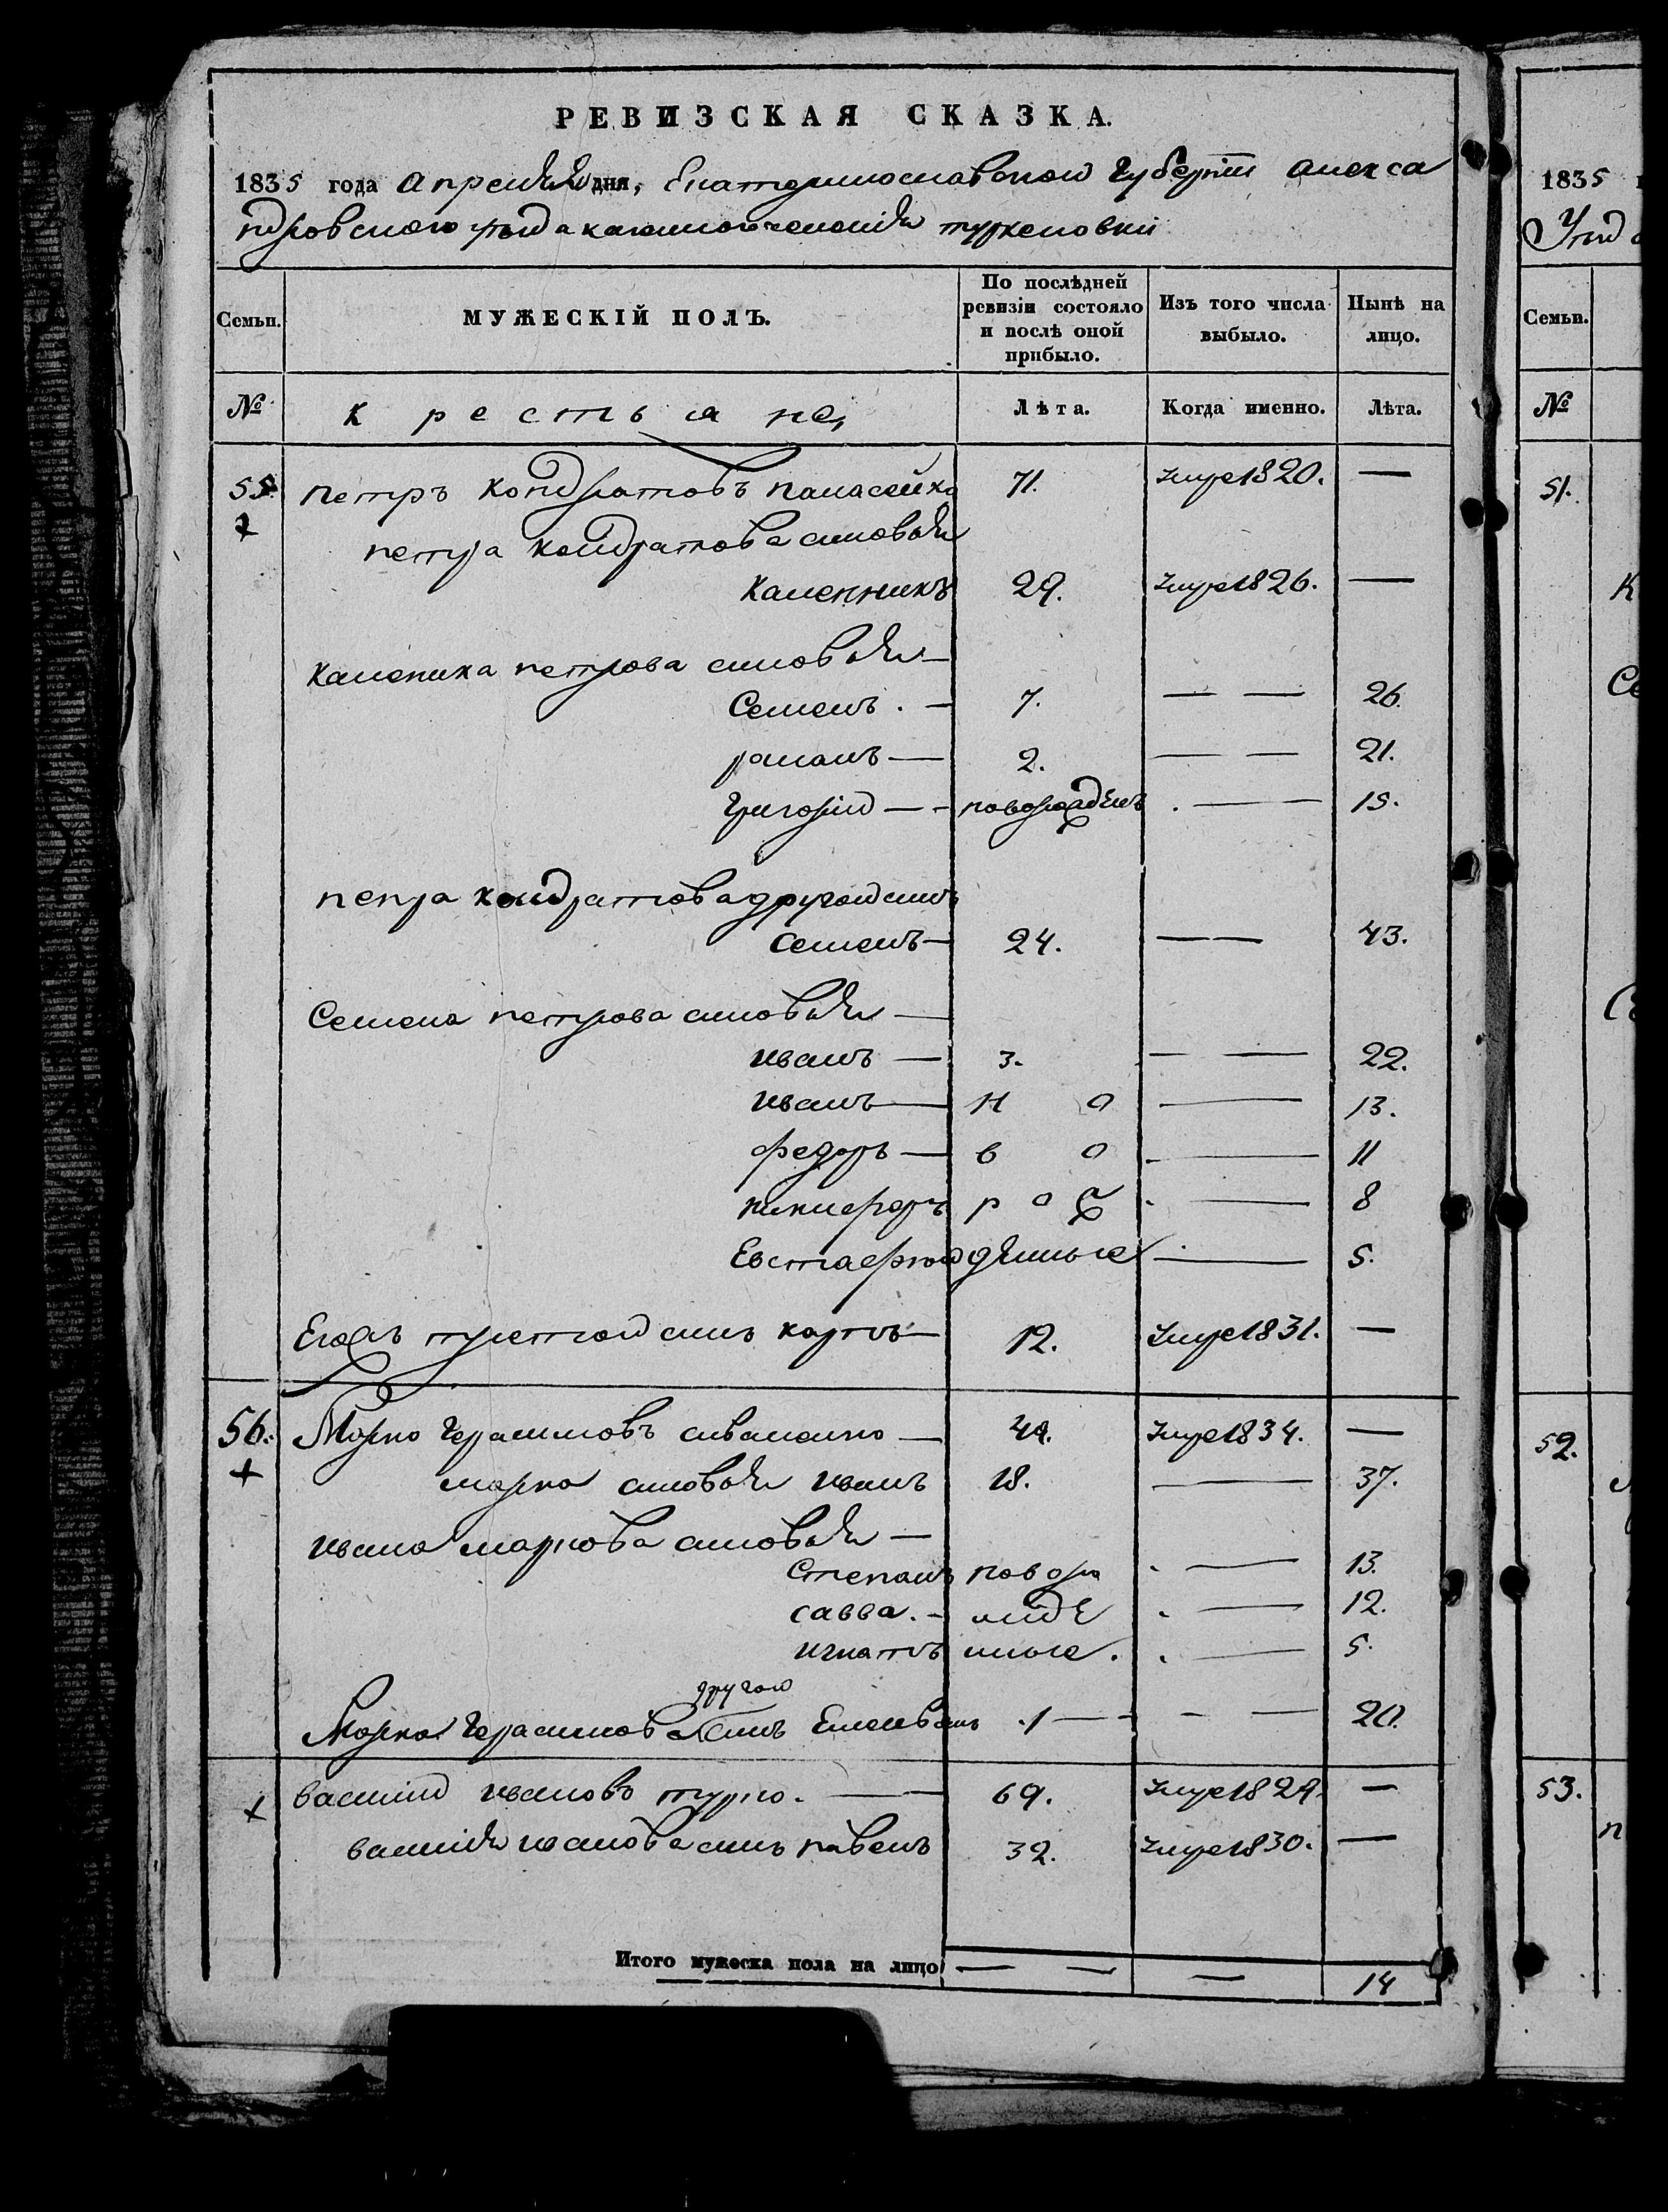 РЕВИЗСКАЯ СКАЗКА.
1835 года апреля дня, Екатеринославской Губернии алекса
ндровского уезда казенного селения туркеновки
Семьи. МУЖЕСКІЙ ПОЛЪ. По послѣдней ревизіи состояло и послѣ оной прибыло. Изъ того числа выбыло. Нынѣ на лицо.
№ крестьяне, Лѣта. Когда именно. Лѣта.
55. петръ кондратовъ панасейко 71. умре 1820. —
петра кондратова сыновья
каленникъ 29. умре 1826. —
каленика петрова сыновья —
Семенъ. — 7. — — 26.
романъ — 2. — — 21.
Григорій — новорожденъ — 15.
петра кондратова другой сынъ
семенъ — 24. — 43.
Семена петрова сыновья —
иванъ — 3. — — 22.
иванъ — н о — 13.
федоръ — в о — 11
никифоръ р о ж — 8
Евстафій денные — 5.
Его третой сынъ карпъ — 12. умре 1831. —
56. Марко Герасимовъ сиваченко — 49. умре 1834. —
марка сыновья иванъ 18. — 37.
ивана маркова сыновья —
Степанъ новоро — 13.
савва. — жде — 12.
игнатъ нные. — 5.
другой
Марка Герасимова сынъ Емельянъ 1 — — 20.
василій ивановъ турко. — 69. умре 1829. —
василія иванова сынъ павелъ 32. умре 1830. —
Итого мужеска пола на лицо — — — 14
1835
Уезд
Семьи.
№
51.
52.
53.